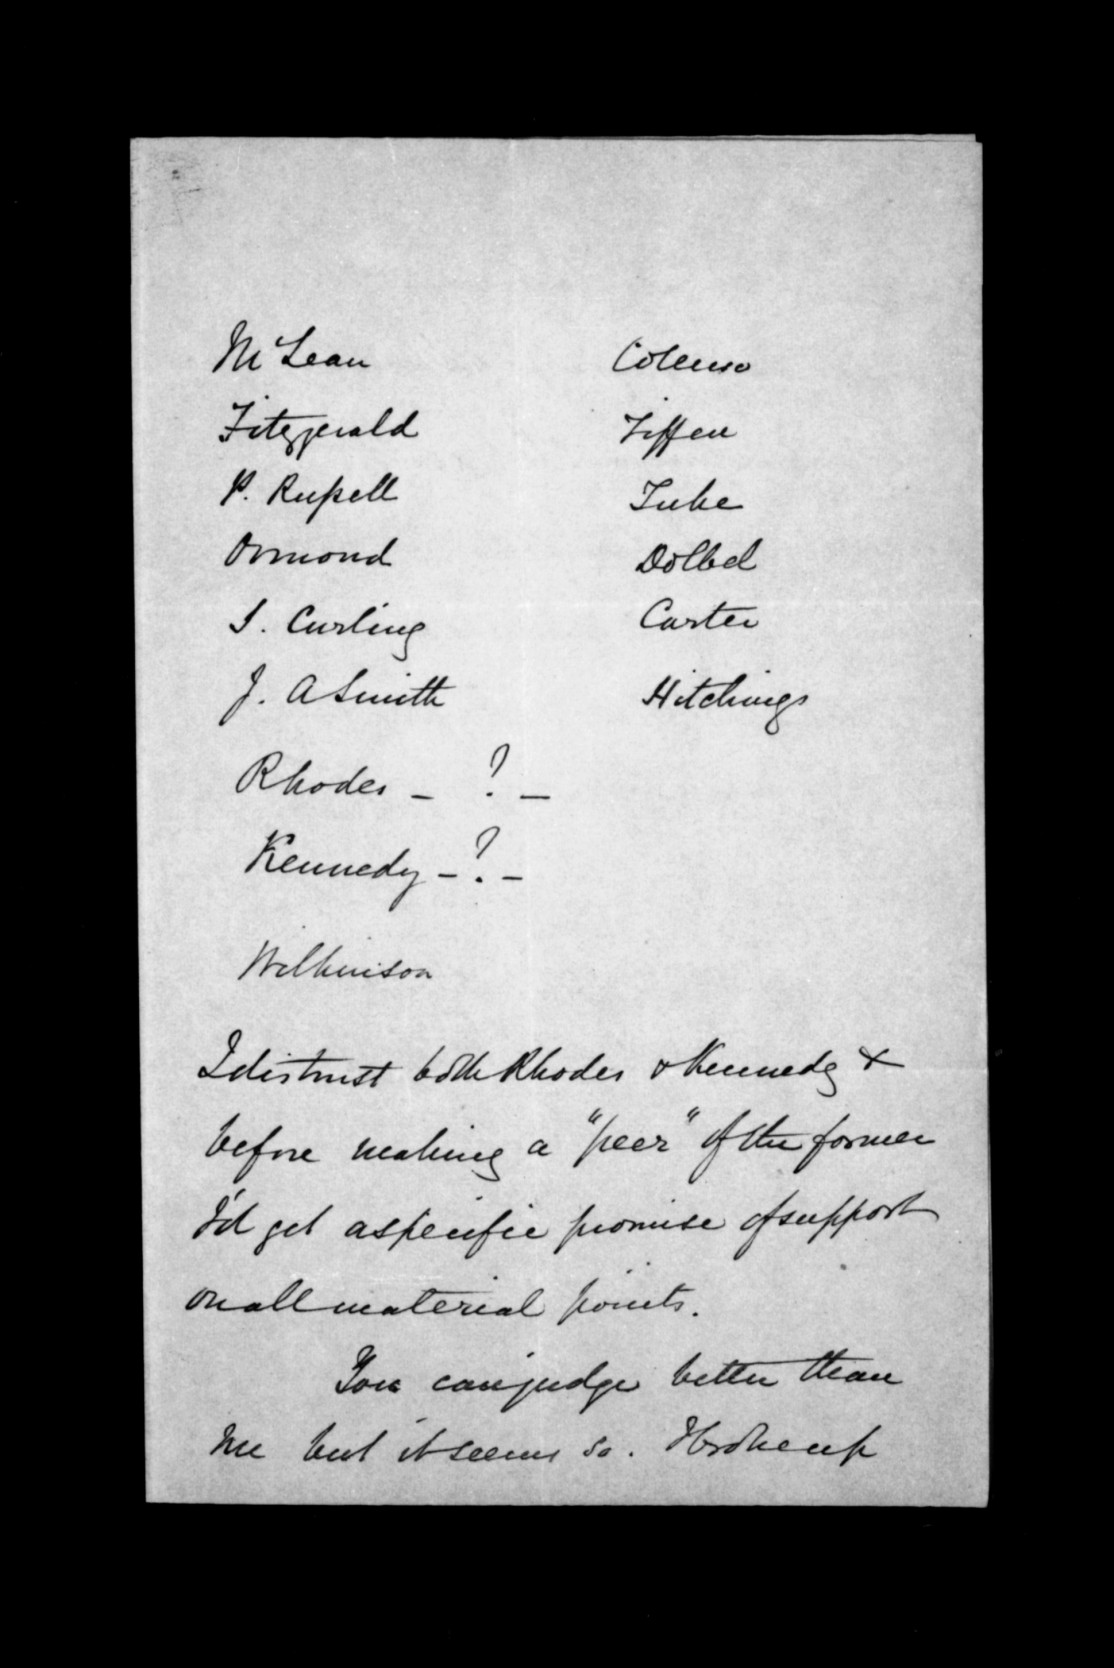 McLean
Fitzgerald
P. Russell
Ormond
S. Curling
J. A Smith
Rhodes - ? -
Kennedy - ? -
Wilkinson
Colenso
Tiffen
Tuke
Dolbel
Carter
Hitchings
I distrust both Rhodes & Kennedy &
before making a "peer" of the former
I'd get a specific promise of support
on all material points.
You can judge better than
me but it seems so. He broke up